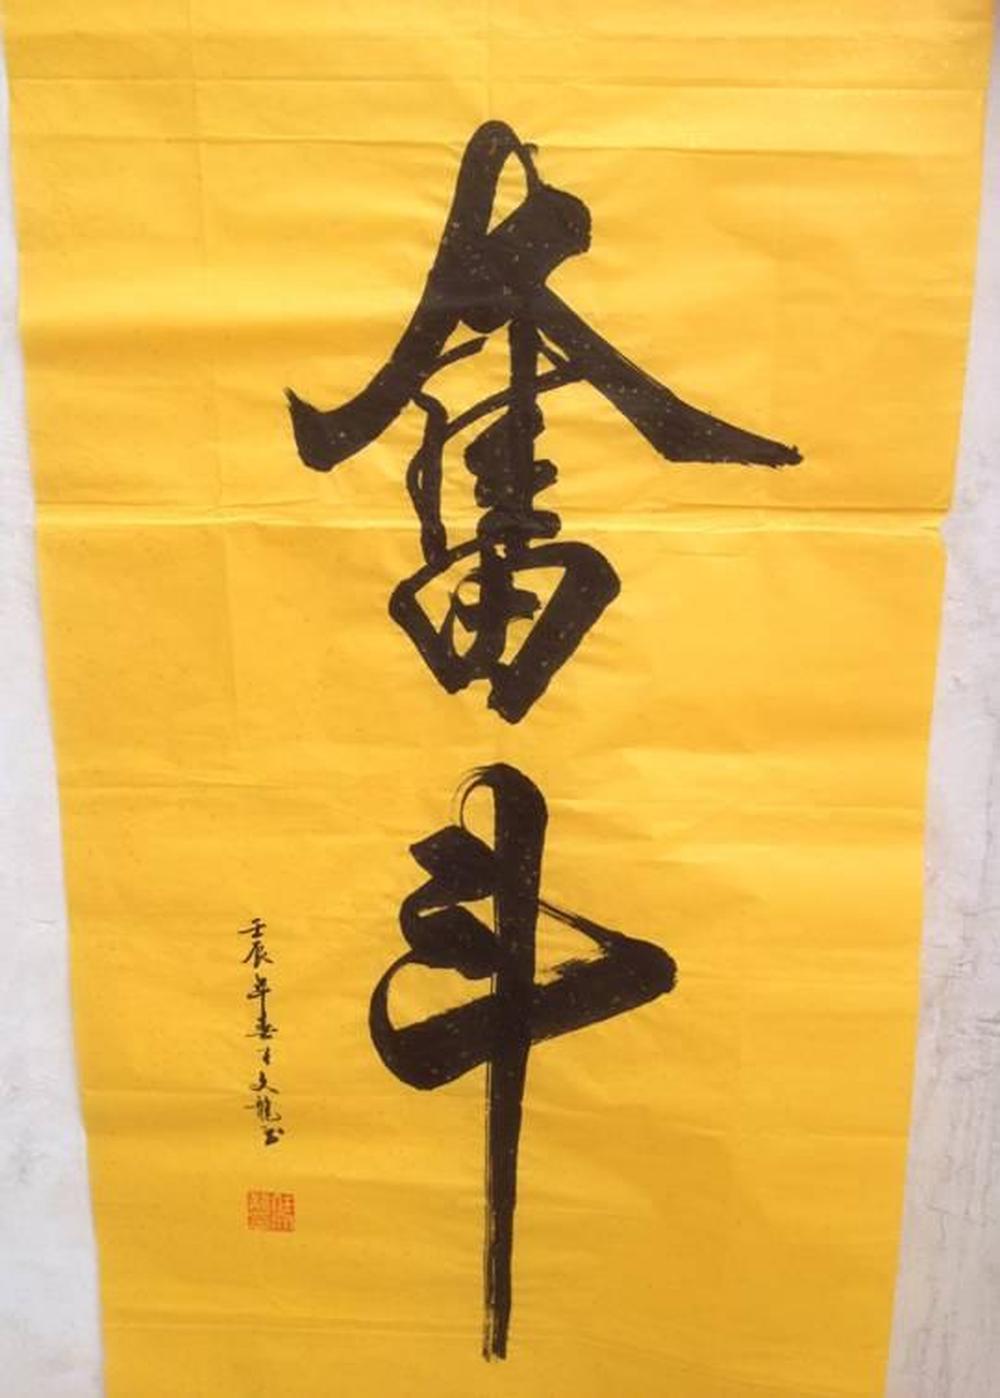 奮斗
壬辰年春于文龍书